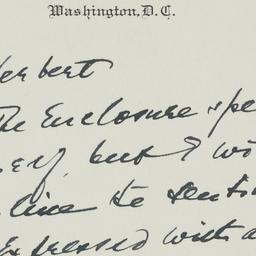 Washington, D.C.
erbert
The Enclosure spe
self but I wo
line to senti
Expressed with a